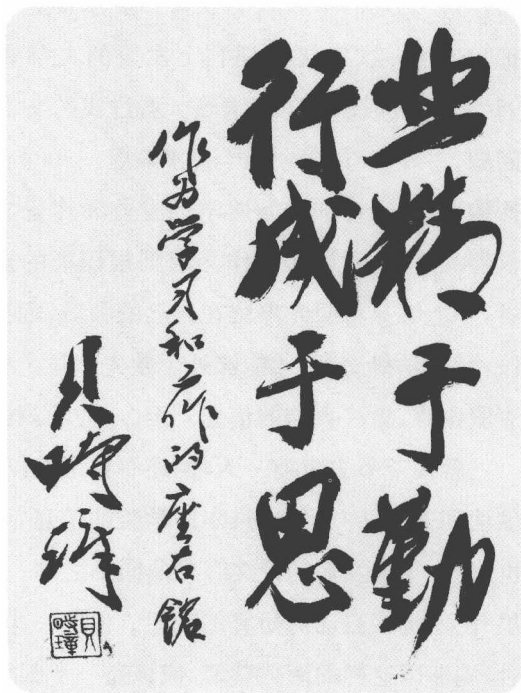 业精于勤
行成于思
作为学习和工作的座右銘
貝時璋
貝時璋